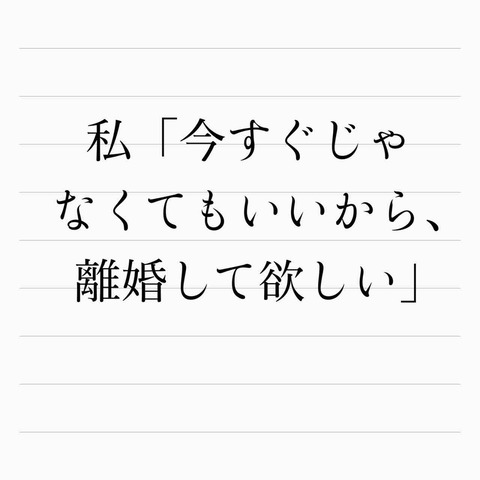 私「今すぐじゃ
なくてもいいから、
離婚して欲しい」